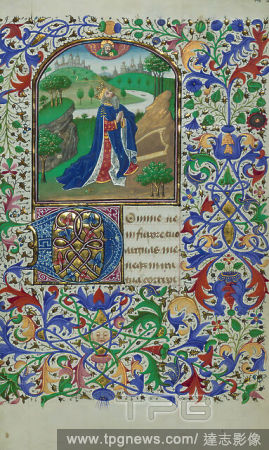 Domine ne
in furore tuo
arguas me
in ira
tua corripi
TPG
www.tpgnews.com/ 達志影像